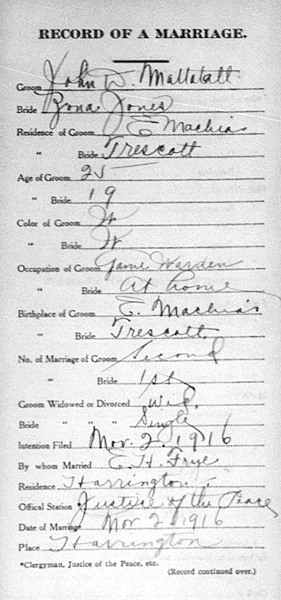 RECORD OF A MARRIAGE.
Groom John D. Mallatatt
Bride Zona Jones
Residence of Groom E Machias
" Bride Trescott
Age of Groom 25
" Bride 19
Color of Groom W
" Bride W
Occupation of Groom Game Warden
" Bride At home
Birthplace of Groom E. Machias
" Bride Trescott
No. of Marriage of Groom Second
" Bride 1st
Groom Widowed or Divorced Wid.
Bride " " Single
Intention Filed Nov. 2, 1916
By whom Married E. H. Frye
Residence Harrington
Official Station Justice of the Peace
Date of Marriage Nov 2 1916
Place Harrington
*Clergyman, Justice of the Peace, etc.
(Record continued over.)